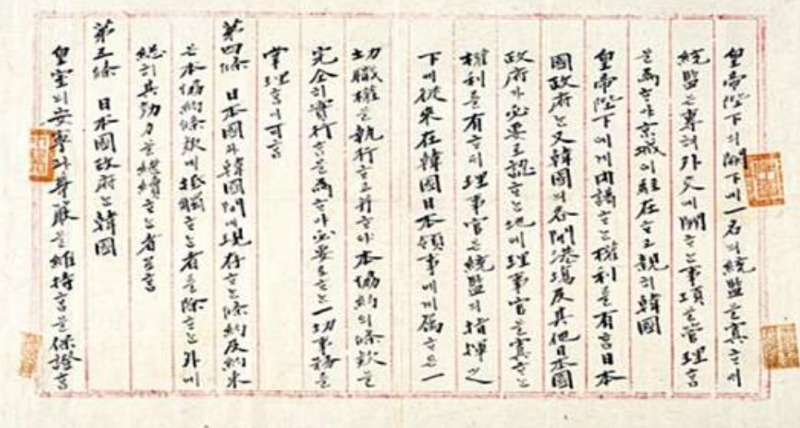 皇帝陛下의 闕下에 一名의 統監을 寘하되
統監은 專혀 外交에 關하는 事項을 管理함
을 爲하야 京城에 駐在하고 親히 韓國
皇帝陛下에게 內謁하는 權利를 有함 日本
國政府는 又 韓國의 各開港場及其他日本國
政府가 必要로 認하는 地에 理事官을 寘하는
權利를 有하되 理事官은 統監의 指揮之
下에 從來 在韓國日本領事에게 屬하든 一
切職權을 執行하고 幷하야 本協約의 條款을
完全히 實行함을 爲하야 必要로 하는 一切事務를
掌理함이 可함
第四條 日本國과 韓國間에 現存하는 條約及約束
은 本協約條款에 抵觸하는 者를 除하는 外에
總히 其効力을 繼續하는 者로 함
第五條 日本國政府는 韓國
皇室의 安寧과 尊嚴을 維持함을 保證함